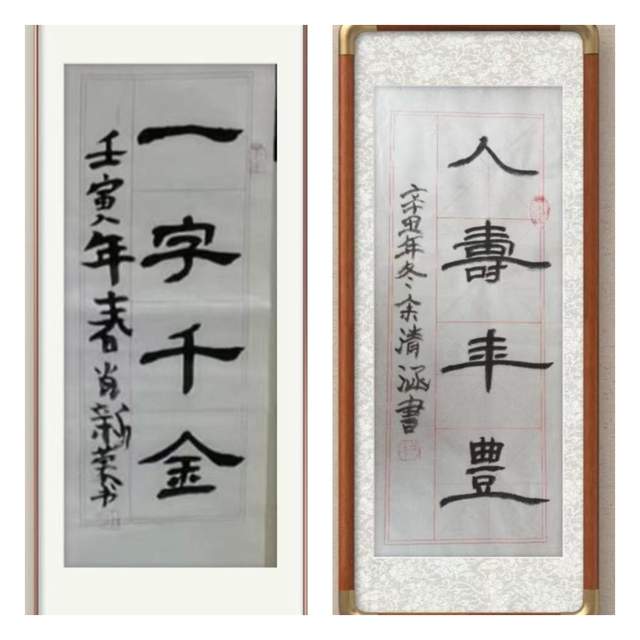 一字千金
壬寅年春肖新荣书
人壽年豊
辛丑年冬余清涵書